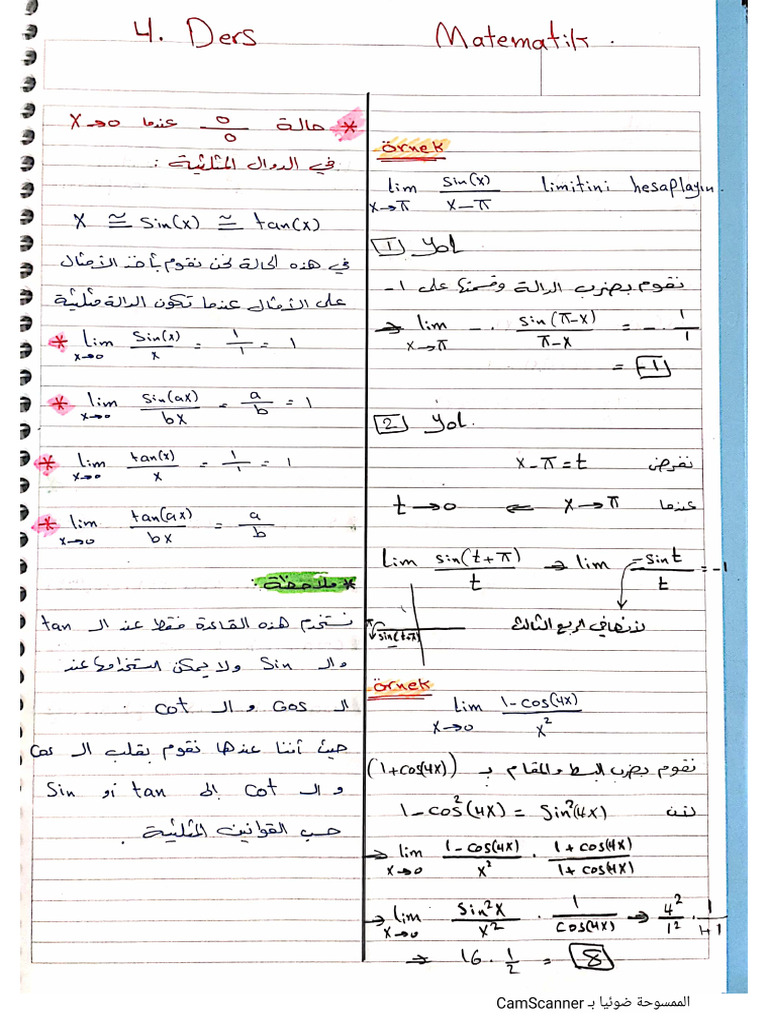 4. Ders Matematik.
* حالة 0/0 عندما x→0
في الدوال المثلثية :
x ≅ sin(x) ≅ tan(x)
في هذه الحالة نحن نقوم بأخذ الأمثال
على الأمثال عندما تكون الدالة مثلثية
* lim x→0 sin(x)/x = 1/1 = 1
* lim x→0 sin(ax)/bx = a/b = 1
* lim x→0 tan(x)/x = 1/1 = 1
* lim x→0 tan(ax)/bx = a/b
* ملاحظة :
نستخدم هذه القاعدة فقط عند الـ tan
والـ sin ولا يمكن استخدامها عند
الـ cos والـ cot .
حيث أننا عندها نقوم بقلب الـ cos
والـ cot إلى tan أو sin
حسب القوانين المثلثية .
örnek
lim x→π sin(x)/x-π limitini hesaplayın.
1 yol
نقوم بضرب الدالة وقسمتها على 1-
→ lim x→π - . sin(π-x)/π-x = - . 1/1
= -1
2 yol.
نفرض x-π=t
عندما x→π ⇐ t→0
lim sin(t+π)/t → lim -sint/t = -1
لأنها في الربع الثالث
π
sin(t+π)
örnek
lim x→0 1-cos(4x)/x²
نقوم بضرب البسط والمقام بـ (1+cos(4x))
1-cos²(4x) = sin²(4x)
→ lim x→0 1-cos(4x)/x² . 1+cos(4x)/1+cos(4x)
→ lim x→0 sin²x/x² . 1/cos(4x) → 4²/1² . 1/1+1
→ 16 . 1/2 = 8
الممسوحة ضوئيا بـ CamScanner